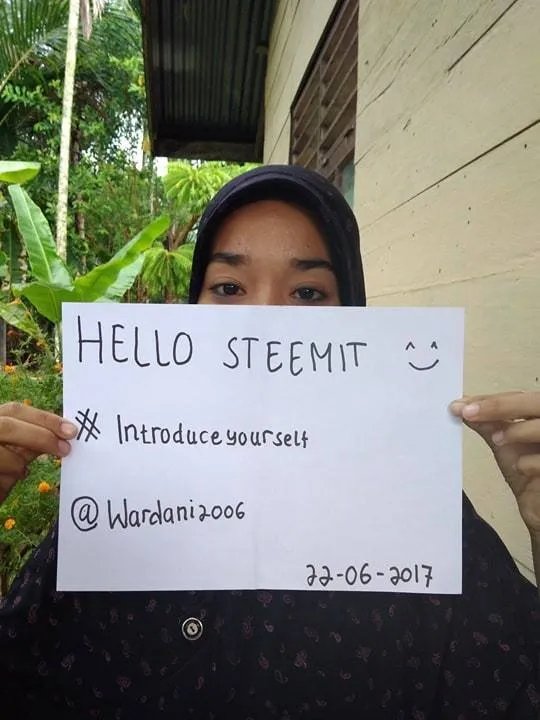 HELLO STEEMIT ^‿^
# Introduceyourself
@Wardani2006
22-06-2017